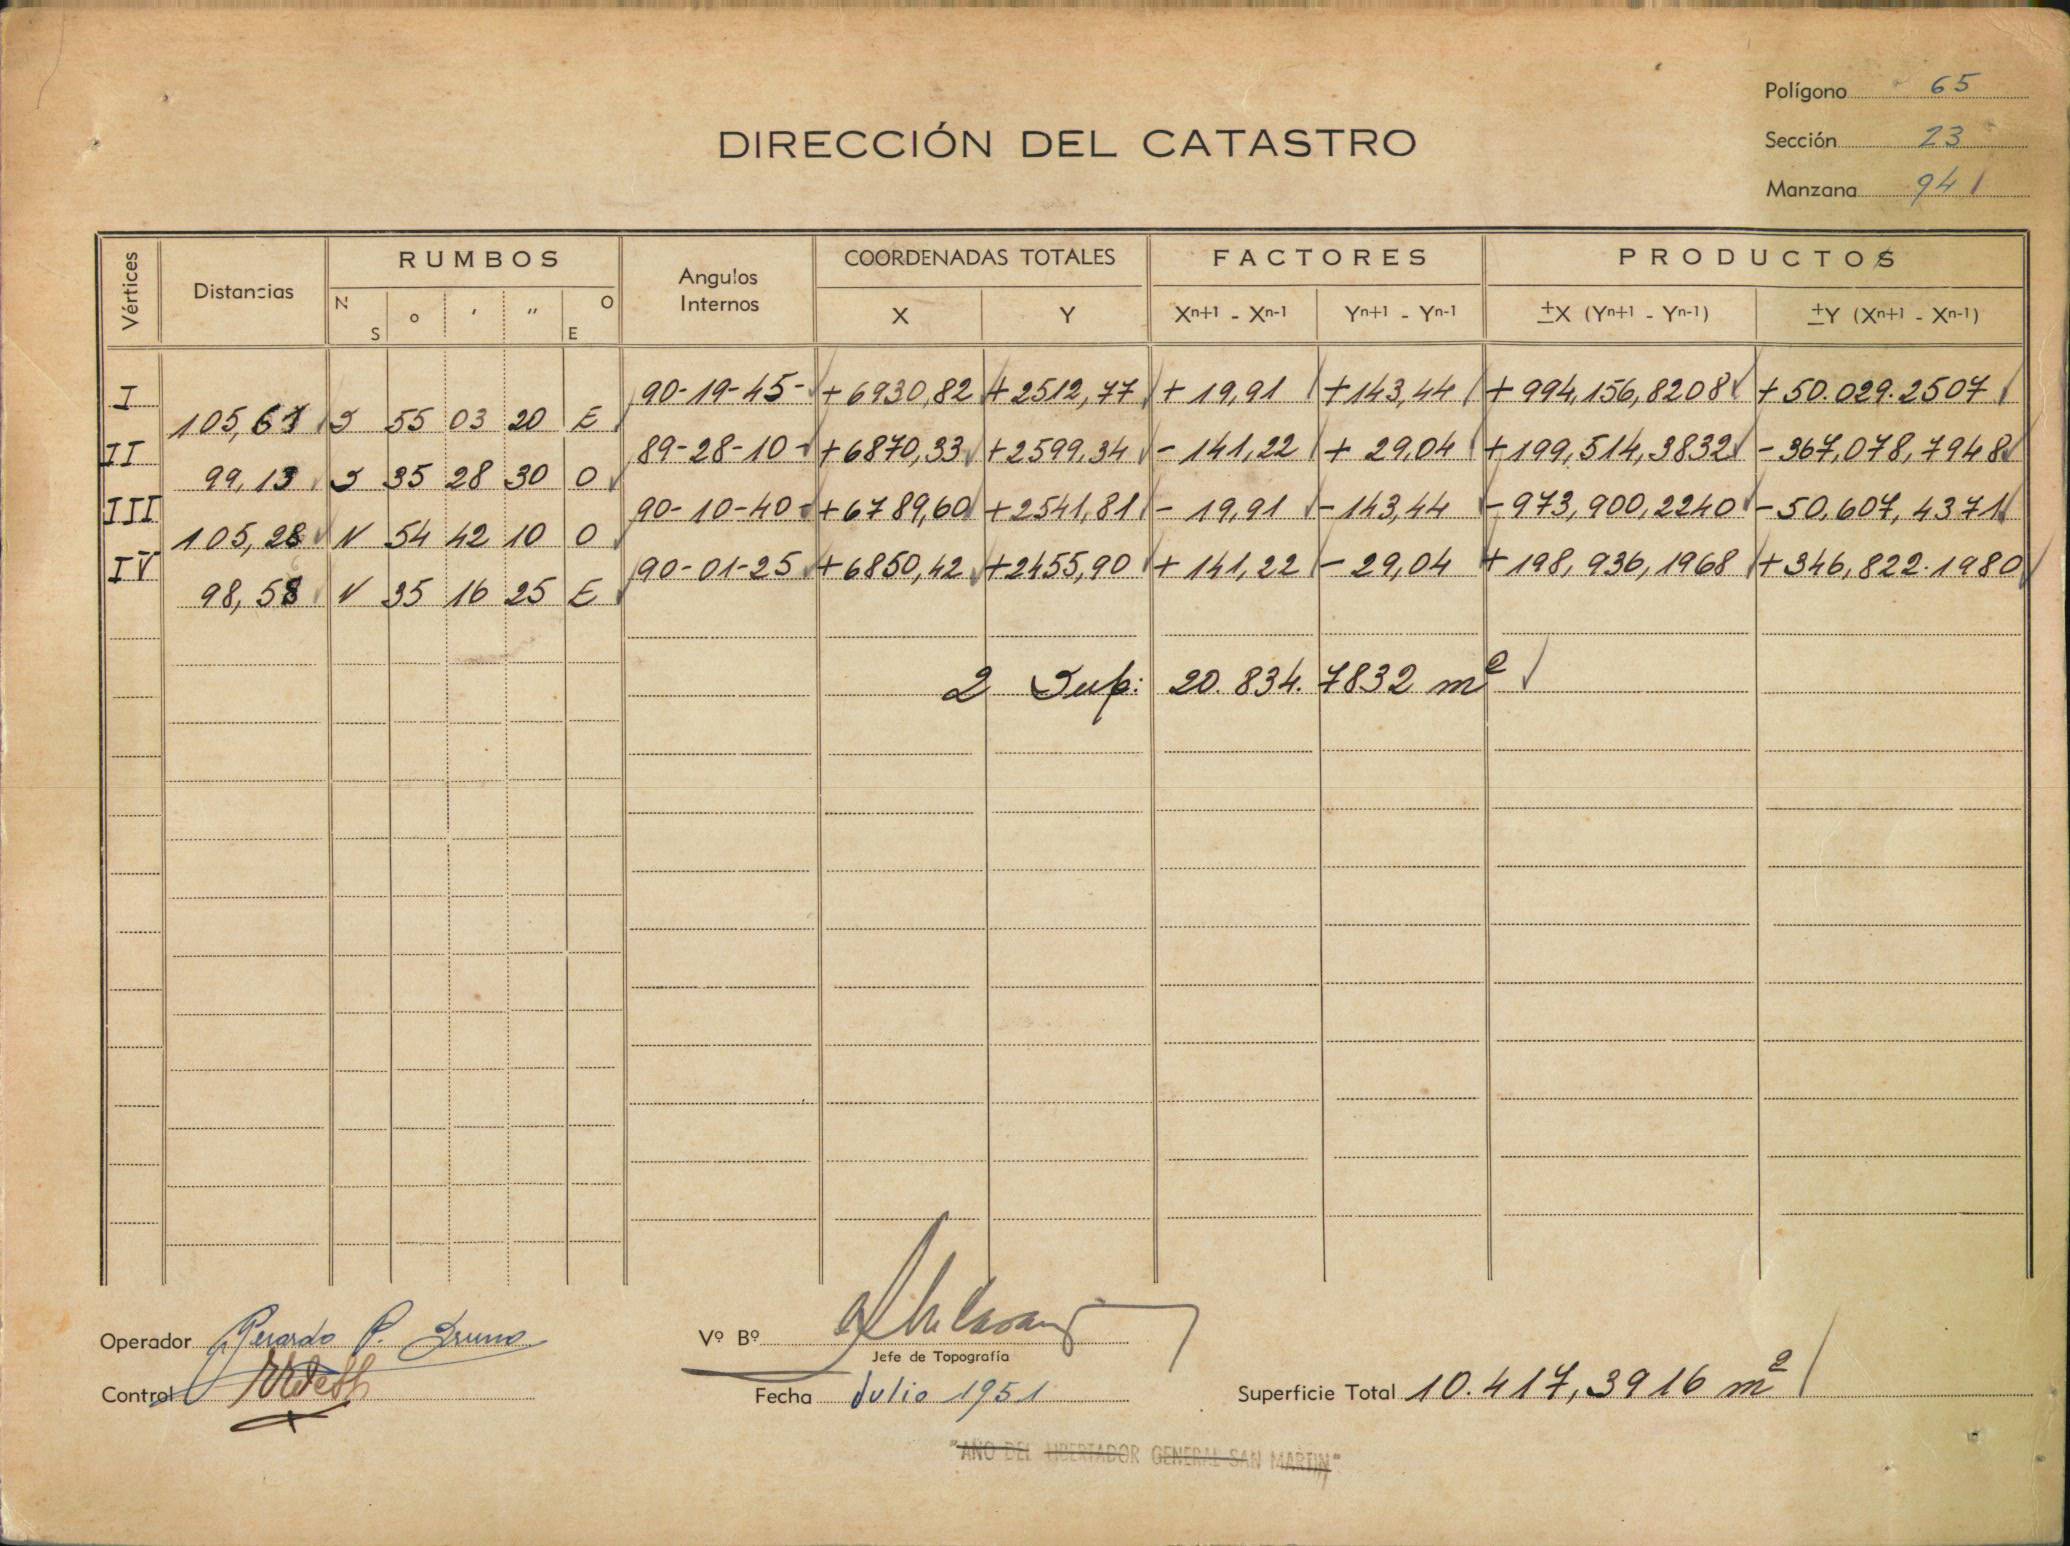 Polígono 65
DIRECCIÓN DEL CATASTRO
Sección 23
Manzana 941
Vértices
Distancias
RUMBOS
N S o ' " O E
Angulos Internos
COORDENADAS TOTALES
X Y
FACTORES
Xn+1 - Xn-1 Yn+1 - Yn-1
PRODUCTOS
±X (Yn+1 - Yn-1) ±Y (Xn+1 - Xn-1)
I 90-19-45- +6930,82 +2512,77 +19,91 +143,44 +994,156,8208 +50.029.2507
105,61 S 55 03 20 E
II 89-28-10- +6870,33 +2599,34 -141,22 +29,04 +199,514,3832 -367,078,7948
99,13 S 35 28 30 O
III 90-10-40- +6789,60 +2541,81 -19,91 -143,44 -973,900,2240 -50,607,4371
105,28 N 54 42 10 O
IV 90-01-25 +6850,42 +2455,90 +141,22 -29,04 +198,936,1968 +346,822.1980
98,58 N 35 16 25 E
2 Sup: 20.834.7832 m²
Operador Gerardo P. Bruno
Vº Bº
Jefe de Topografía
Control
Fecha Julio 1951
Superficie Total 10.417,3916 m²
"AÑO DEL LIBERTADOR GENERAL SAN MARTIN"